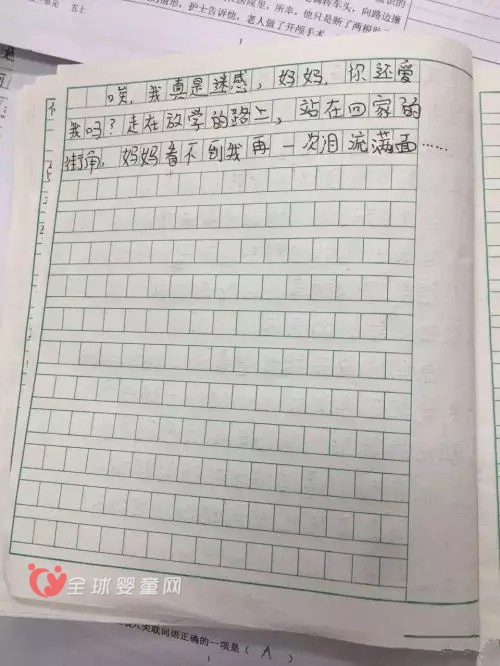 所幸,他只是断了两根肋
护士告诉他,老人做了开颅手术
五七
唉,我真是迷惑,妈妈,你还爱
我吗?走在放学的路上,站在回家的
街角,妈妈看不到我再一次泪流满面……
全球婴童网
词语正确的一项是( A )